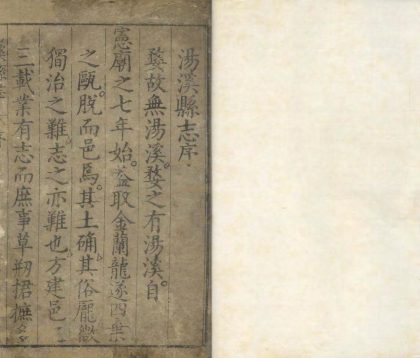 湯溪縣志序
婺故無湯溪婺之有湯溪自
憲廟之七年始益取金蘭龍遂四棄
之甌脫而邑焉其土确其俗龐微
獨治之難志之亦難也方建邑
三載業有志而庶事草剏捃摭多